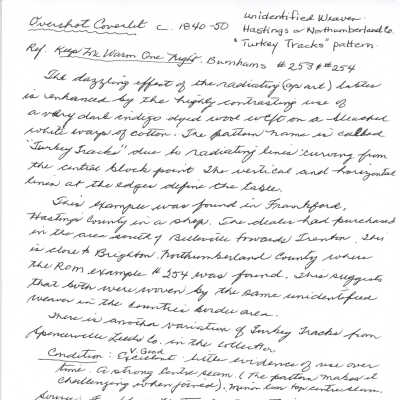 Overshot Coverlet c. 1840-50
unidentified Weaver
Hastings or Northumberland Co.
"Turkey Tracks" pattern
Ref. Keep Me Warm One Night, Burnhams #253 & #254
The dazzling effect of the radiating (op art) tables
is enhanced by the highly contrasting use of
a very dark indigo dyed wool weft on a bleached
white warp of cotton. The pattern name is called
"Turkey Tracks" due to radiating lines curving from
the central block point. The vertical and horizontal
lines at the edges define the table.
This example was found in Frankford,
Hastings County in a shop. The dealer had purchased
in the area south of Belleville towards Trenton. This
is close to Brighton, Northumberland County where
the ROM example #254 was found. This suggests
that both were woven by the same unidentified
weaver in the counties border area.
There is another variation of Turkey Tracks from
Spencerville Leeds Co. in the collection
V. Good
Condition: Excellent little evidence of use over
time. A strong centre seam. (The pattern makes it
challenging when joined). Minor